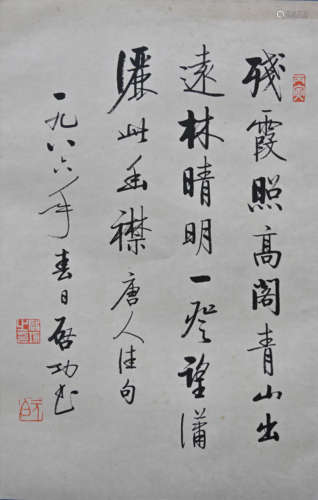 残霞照高阁青山出
遠林晴明一登望潇
灑此幽襟唐人佳句
一九八六年春日启功书